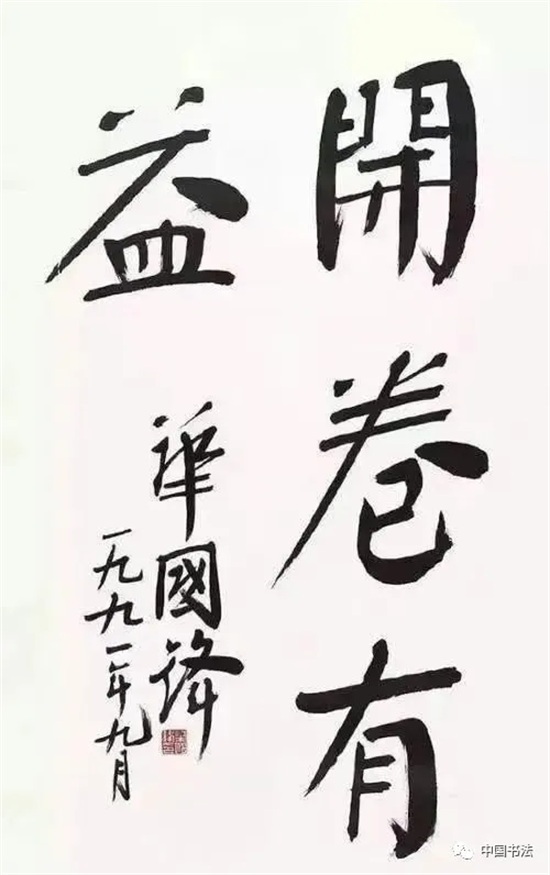 開卷有
益
華國鋒
一九九一年九月
中国书法